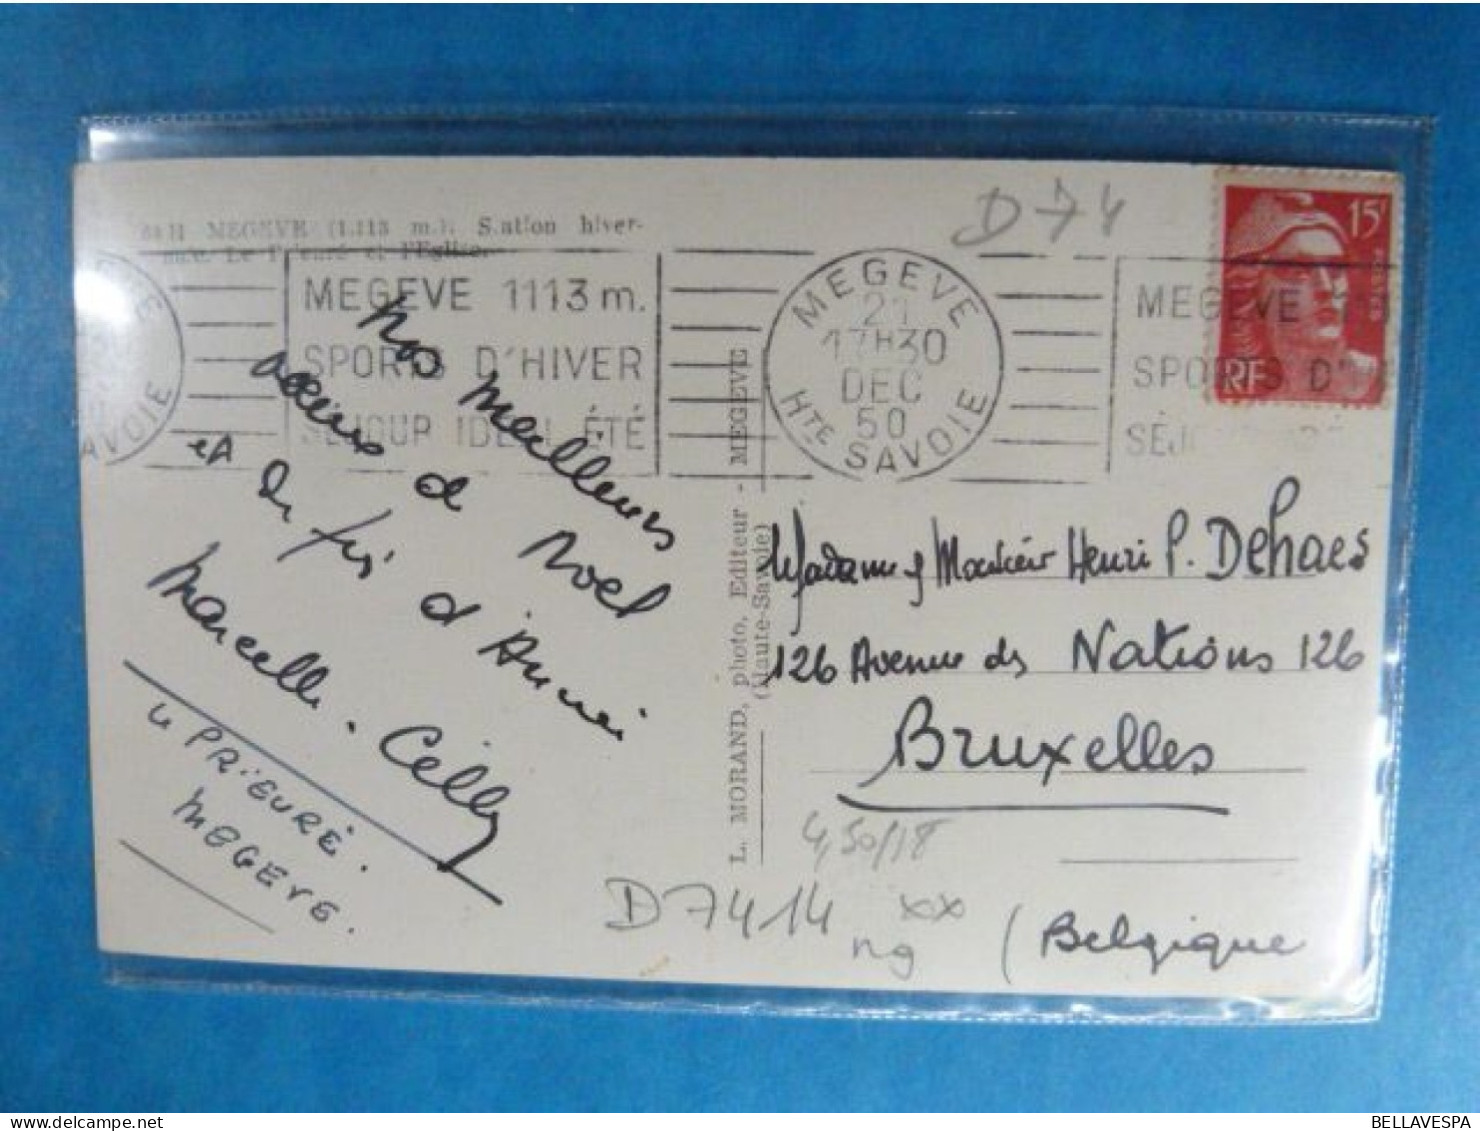 84 H MEGEVE (1.113 m.). Station hiver-
nale. Le Prieuré et l'Eglise.
MEGEVE 1113 m.
SPORTS D'HIVER
SÉJOUR IDÉAL ÉTÉ
MEGEVE
21
17H30
DEC
50
HTE SAVOIE
MEGEVE
SPORTS D'
SÉJ
15F
POSTES
RF
SAVOIE
D74
Nos meilleurs
vœux de Noel
et de fin d'Année
Marcelle - Celly
Le PRIEURÉ.
MEGEVE.
L. MORAND, photo, Editeur - MEGEVE
(Haute-Savoie)
Madame & Monsieur Henri P. Dehaes
126 Avenue des Nations 126
Bruxelles
(Belgique
4,50/18
D7414
xx
ng
BELLAVESPA